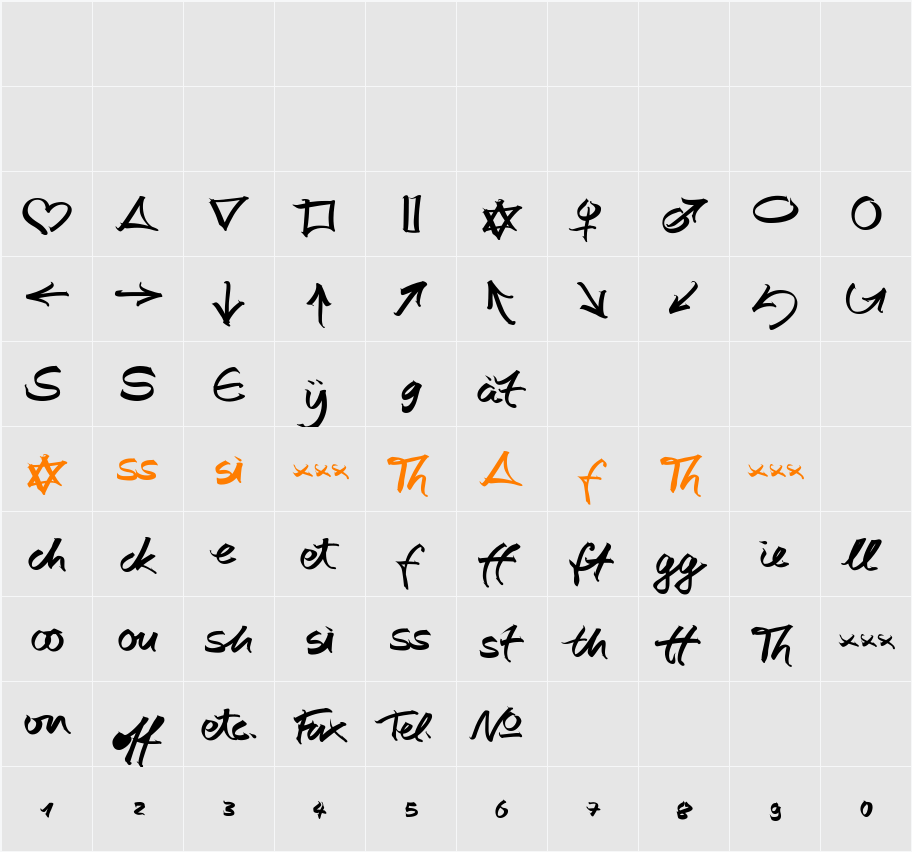 ♡ △ ▽ □ || ✡ ♀ ♂ ⬭ O
← → ↓ ↑ ↗ ↖ ↘ ↙
S S € ÿ g ät
✡ ss si xxx Th △ f Th xxx
ch ck e et f ff ft gg ie ll
oo ou sh si ss st th tt Th xxx
on off etc. Fax Tel. №
1 2 3 4 5 6 7 8 9 0